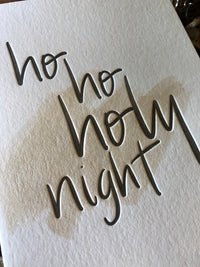 ho
ho
holy
night